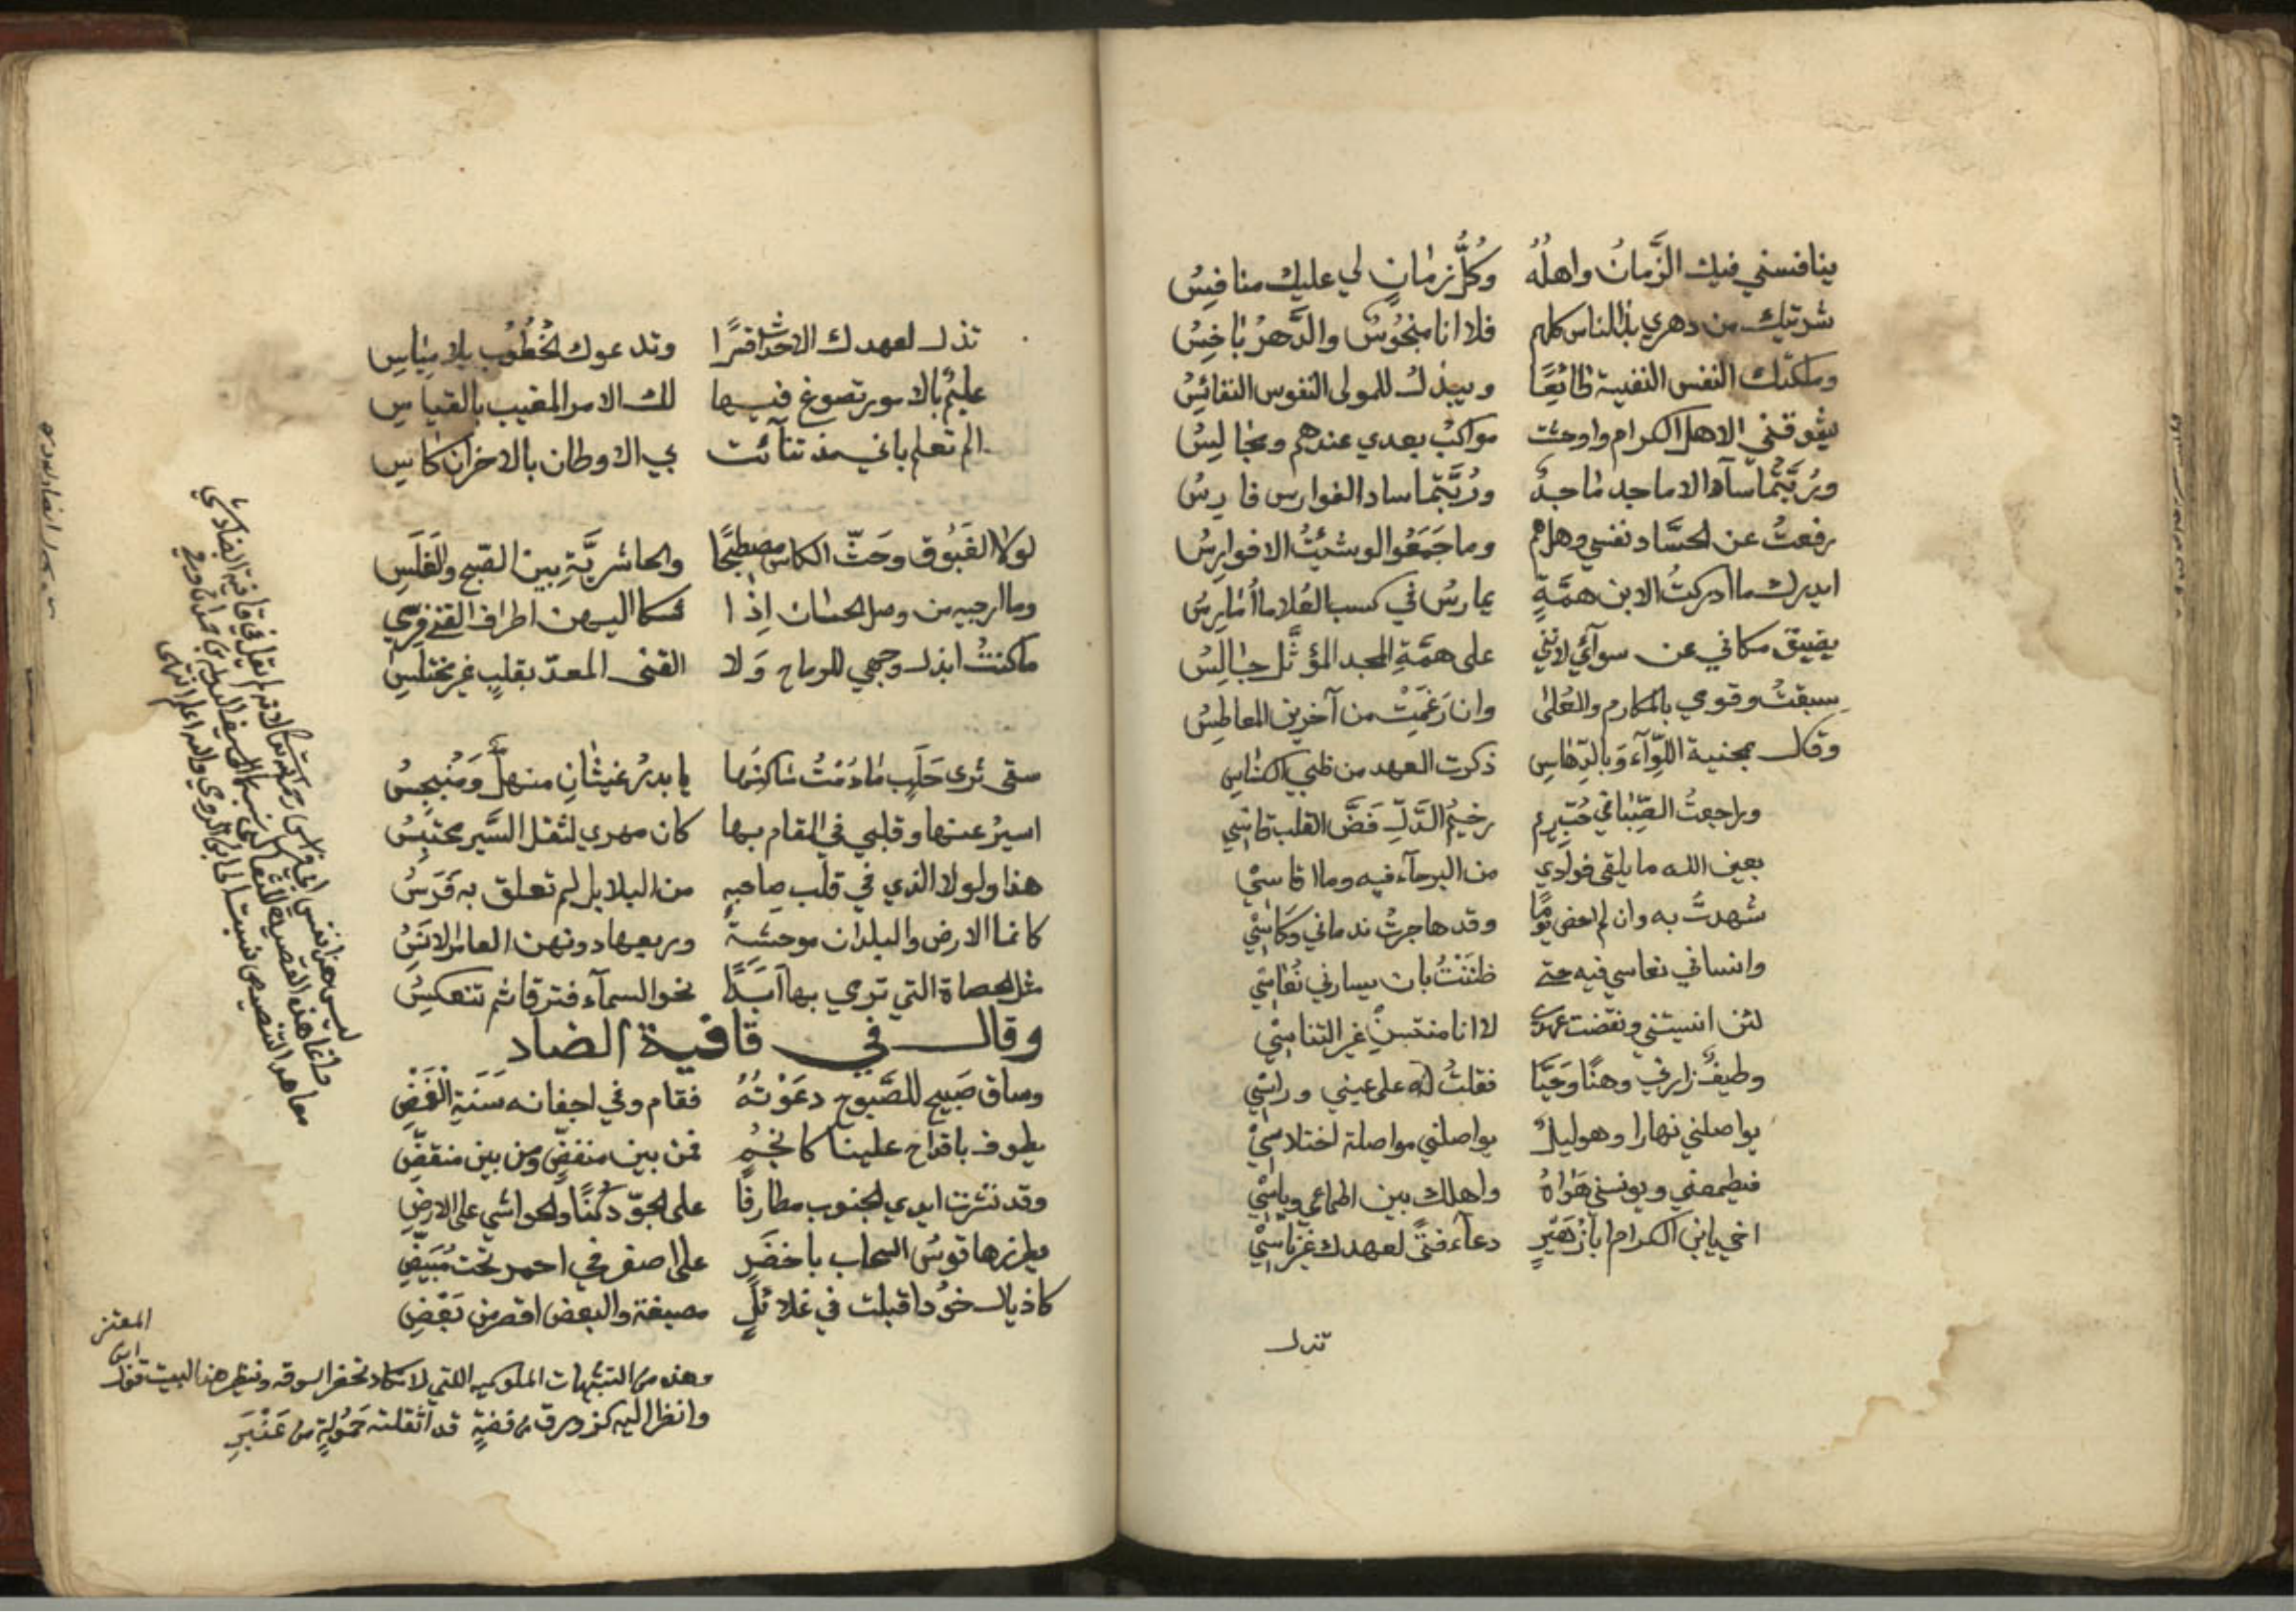 ينافسني فيك الزَّمانُ واهلُهُ وكُلُّ زمانٍ لي عليك منافِسُ
شريتك من دهري بذا الناس كلهم فلا انا مبخُوسٌ والدَّهرُ باخِسُ
وملكتك النفس النفيسة طائعًا ويبذل للمولى النفوس النفائسُ
يشوقني الاهل الكرام واوحشت مواكبُ بعدي عندهم ومجالِسُ
ورُبَّتما سآد الاماجد ماجدٌ ورُبَّتما ساد الفوارس فارِسُ
رفعتُ عن الحسَّاد نفسي وهل همُ وما جَمَعُوا لو شئتُ الا فوارِسُ
ايدرك ما ادركتُ الا ابن همَّةٍ يمارسُ في كسب العُلا ما امارِسُ
يضيق مكاني عن سوآئي لانني على همَّةِ المجد المؤثَّل جالِسُ
سبقتُ وقومي بالمكارم والعُلى وان رَغَمَتْ من آخرين المعاطِسُ
وقال بمحنية اللّوآء وبالدّهاسِ ذكرت العهد من ظبي الكناسِ
وراجعتُ الصِّبا في حُبِّ رِيم رخيمُ الدَّلِّ فَضَّ القلب قاسِي
بعين الله ما يلقى فوادي من البرحآء فيه وما اقاسِيْ
شهدتُ به وان لم احض يومًا وقد هاجرتُ ندماني وكَاسِيْ
وانساني نعاسي فيه حتى ظنَنْتُ بان يسارني نُعاسِي
لئن انسيتني ونقضت عهدي لا انا منتسٍ غير التناسِيْ
وطيفٌ زارني وهنًا وحَيَّا فقلتُ له على عيني وراسِي
يواصلني نهارا وهو ليلٌ يواصلني مواصلة اختلاسِيْ
فيطمعني ويونسني هَوَاهُ واهلك بين اطماعي وياسِيْ
اخي يابن الكرام ابا زُهَيرٍ دعآء فتًى لعهدك غير ناسِيْ
تذل
تذل لعهدك الاحداث قسرًا وتدعوك الخُطُوب بلا مِسَاسِ
عليمٌ بالامور تصوغ فيها لك الامر المغيب بالقياسِ
الم تعلم باني مذ تنآئت بي الاوطان بالاحزان كاسِ
لولا الغَبُوق وحَثّ الكاس مصطبحًا والحاشريَّةِ بين الصّبح والغَلَسِ
وما ارجيه من وصل الحسان اذا شكا اليهن اطراف القنى فرسي
ما كنتُ ابذل وجهي للرماح وَلا القنى المعدّ بقلبٍ غير مختلَسِ
سقى ثرى حَلَبٍ ما دُمْتُ ساكنَها يا بدرُ غيثانِ منهلٌّ وَمُنبجِسُ
اسيرُ عنها وقلبي في المقام بها كان مهري لثقل السَّير محتبِسُ
هذا ولولا الذي في قلب صاحبه من البلابل لم تعلق به فَرَسُ
كانما الارض والبلدان موحشةً وربعها دونهن العامر الانَسُ
مثل الحصاة التي ترمي بها ابَدًا نحو السمآء فترقا ثم تنعكِسُ
وقال في قافية الضاد
وساق صَبيح للصَّبوح دعَوْتُهُ فقام وفي اجفانه سَنَة الغَمْضِ
يطوف باقداح علينا كانجُمٍ فمن بين منفضٍّ ومن بين منقضِّ
وقد نشرت ايدي الجنوب مطارفًا على الجوّ دُكنًا والحواشي على الارضِ
يطرزها قوسُ السحاب باخضَرٍ على اصفر في احمر تحت مُبيَضِّ
كاذيال خَوْد اقبلت في غلائلٍ مصبغة والبعض اقصر من بَعْضِ
وهذه من التشبيهات الملوكيه اللتي لا تكاد تحضر السوقه ونظير هذا البيت قول ابن المعتز
وانظر اليه كزورق من فضةٍ قد اثقلته حَمُولةٍ من عَنْبَرِ